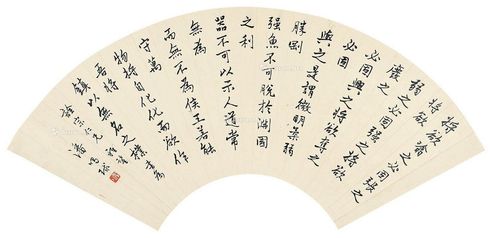 將欲翕之必固張之
將欲
弱之必固強之將欲
廢之
必固興之將欲奪之
必固
與之是謂微明柔弱
勝剛
強魚不可脫於淵國
之利
器不可以示人道常
無為
而無不為侯王若能
守萬
物將自化化而欲作
吾將以無名之樸
鎮
仁兄
潘